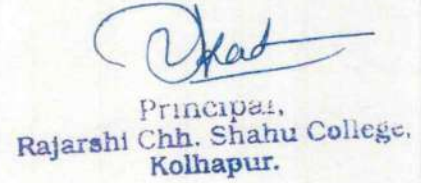 Principal,
Rajarshi Chh. Shahu College,
Kolhapur.